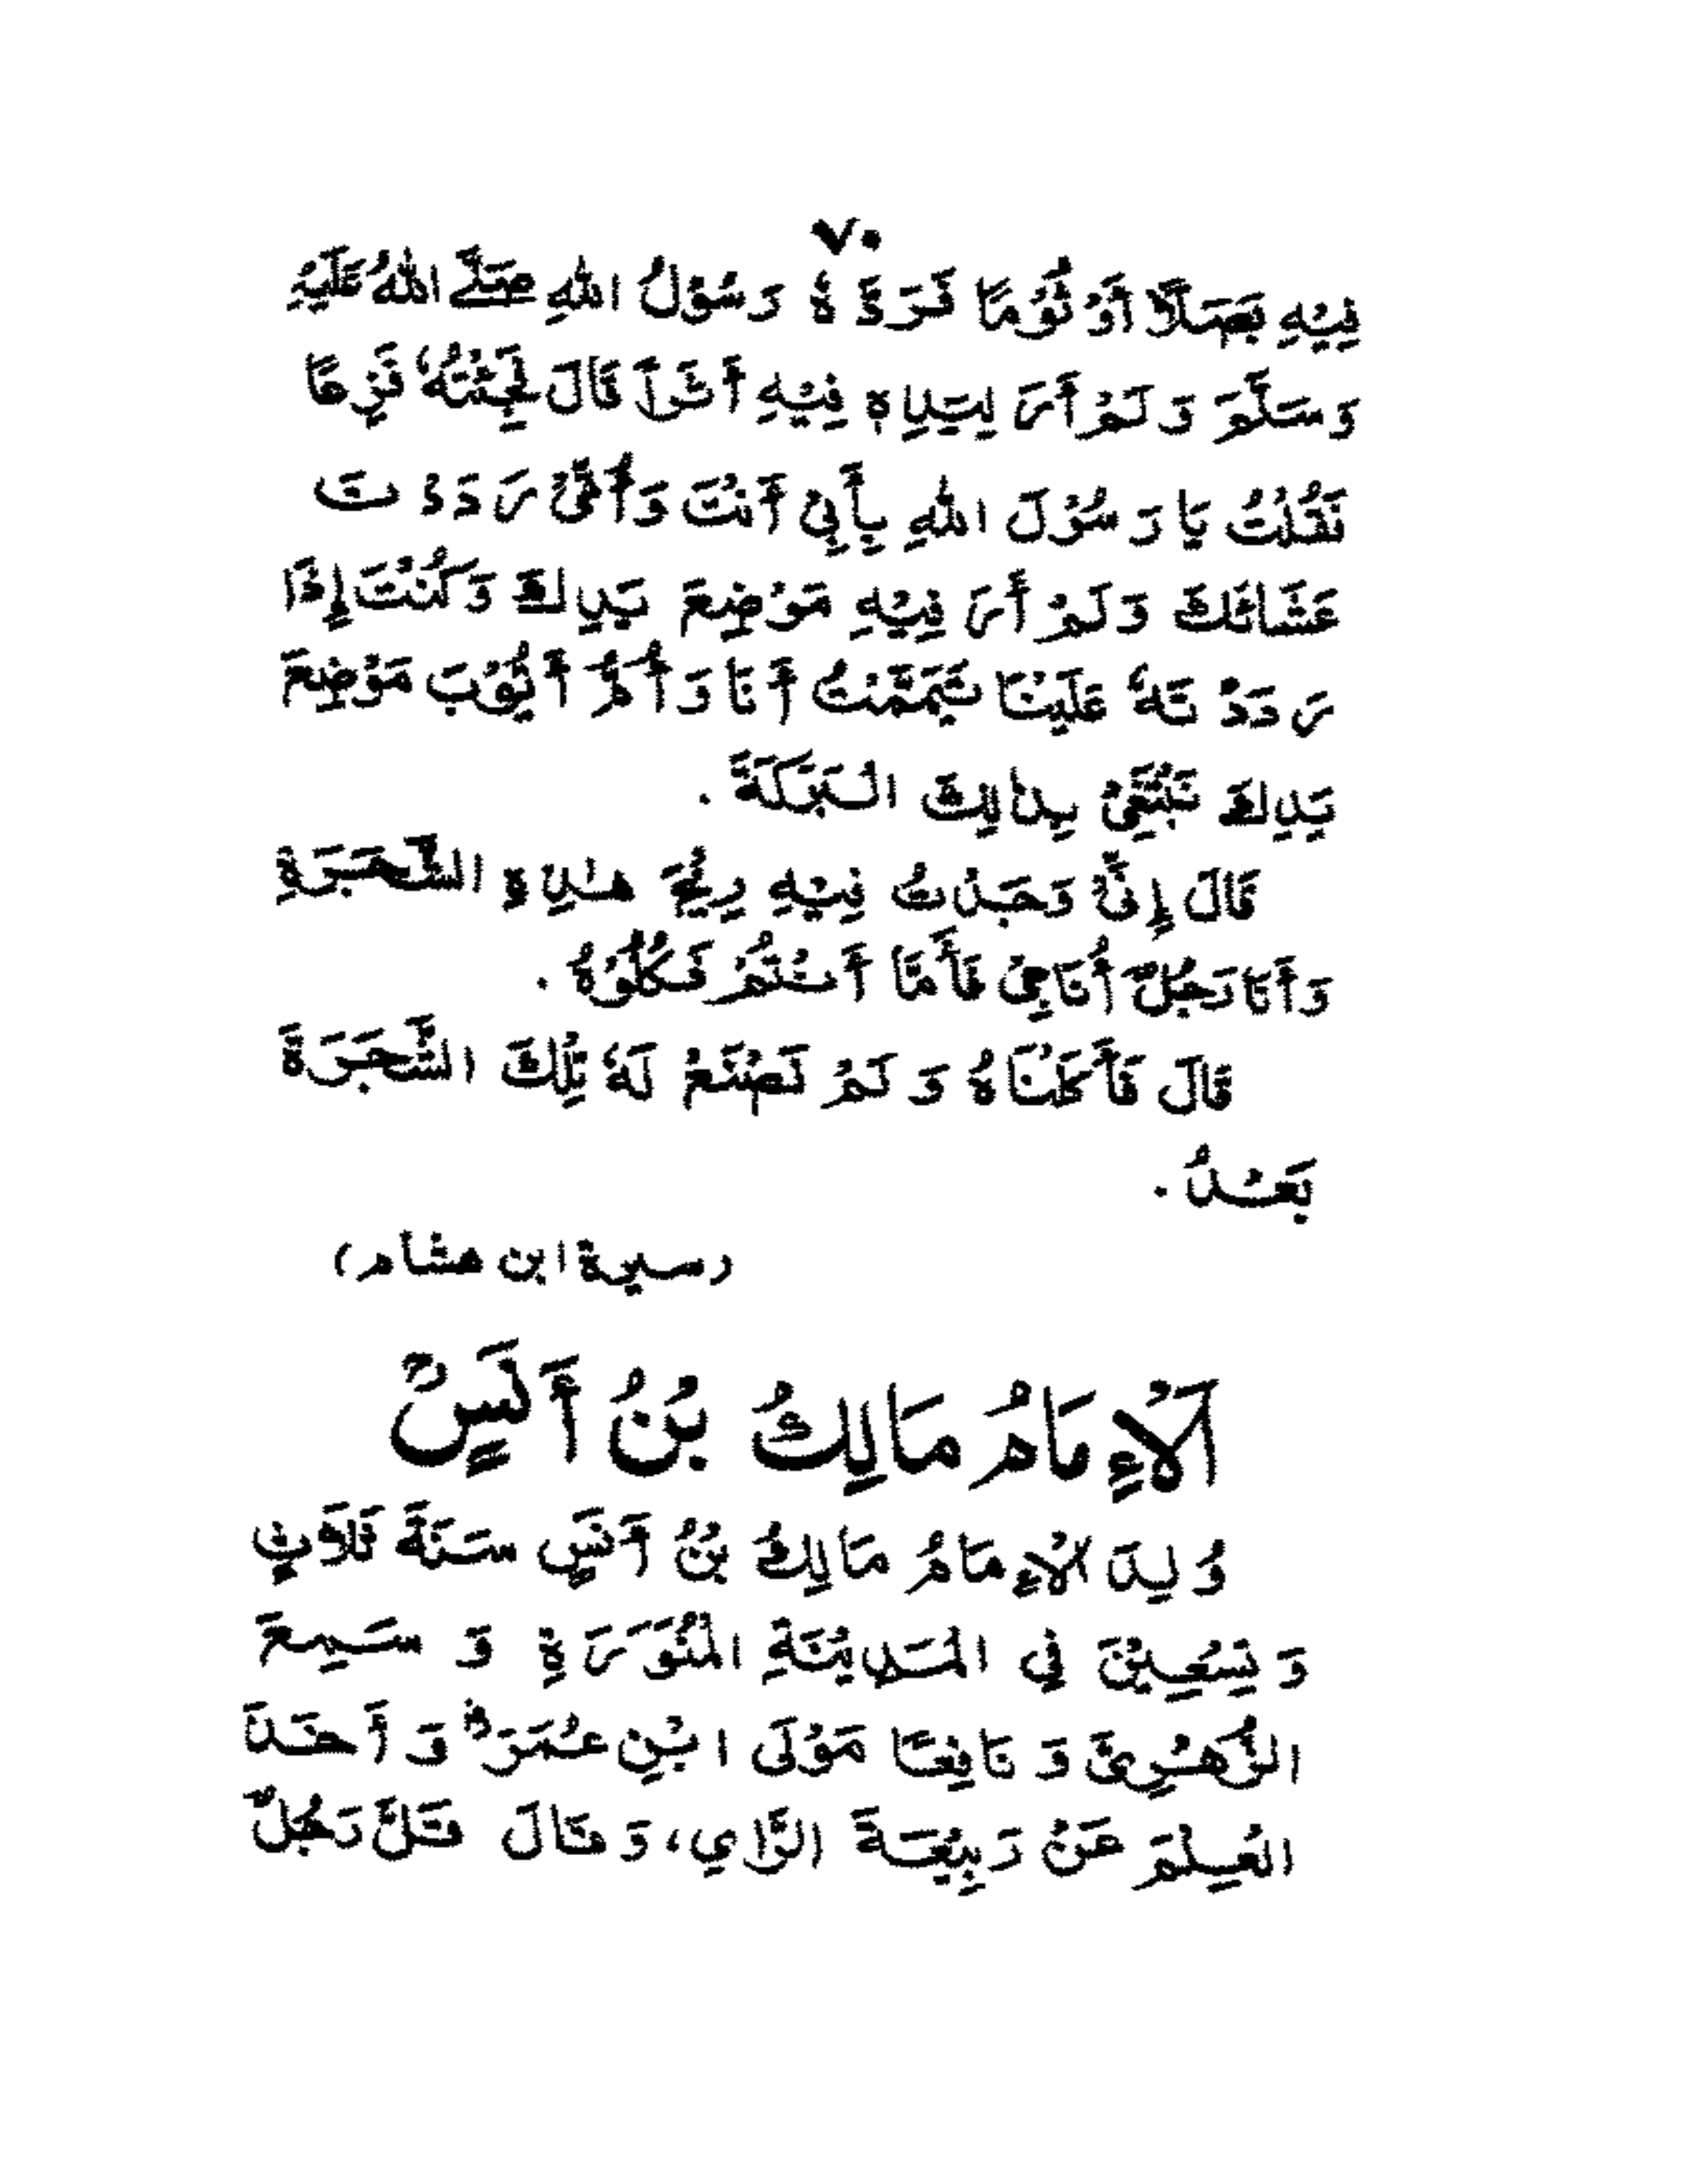 ٧٠
فِيْهِ بَصَلًا أَوْ ثُوْمًا فَرَدَّهُ رَسُوْلُ اللهِ صَلَّى اللهُ عَلَيْهِ
وَسَلَّمَ وَلَمْ أَرَ لِيَدِهٖ فِيْهِ أَثَرًا قَالَ فَجِئْتُهٗ فَزِعًا
فَقُلْتُ يَا رَسُوْلَ اللهِ بِأَبِيْ أَنْتَ وَأُمِّيْ رَدَدْتَ
عَشَائَكَ وَلَمْ أَرَ فِيْهِ مَوْضِعَ يَدِكَ وَكُنْتَ إِذَا
رَدَدْتَهٗ عَلَيْنَا تَيَمَّمْتُ أَنَا وَأُمُّ أَيُّوْبَ مَوْضِعَ
يَدِكَ نَبْتَغِيْ بِذٰلِكَ الْبَرَكَةَ .
قَالَ إِنِّيْ وَجَدْتُ فِيْهِ رِيْحَ هٰذِهِ الشَّجَرَةِ
وَأَنَا رَجُلٌ أُنَاجِيْ فَأَمَّا أَنْتُمْ فَكُلُوْهُ .
قَالَ فَأَكَلْنَاهُ وَلَمْ نَصْنَعْ لَهٗ تِلْكَ الشَّجَرَةَ
بَعْدُ .
(سيرة ابن هشام)
اَلْإِمَامُ مَالِكُ بْنُ أَنَسٍؒ
وُلِدَ الْإِمَامُ مَالِكُ بْنُ أَنَسٍ سَنَةَ ثَلَاثٍ
وَ تِسْعِيْنَ فِي الْمَدِيْنَةِ الْمُنَوَّرَةِ وَ سَمِعَ
الزُّهْرِيَّ وَ نَافِعًا مَوْلَى ابْنِ عُمَرَؓ وَ أَخَذَ
الْعِلْمَ عَنْ رَبِيْعَةَ الرَّايِ، وَقَالَ قَلَّ رَجُلٌ